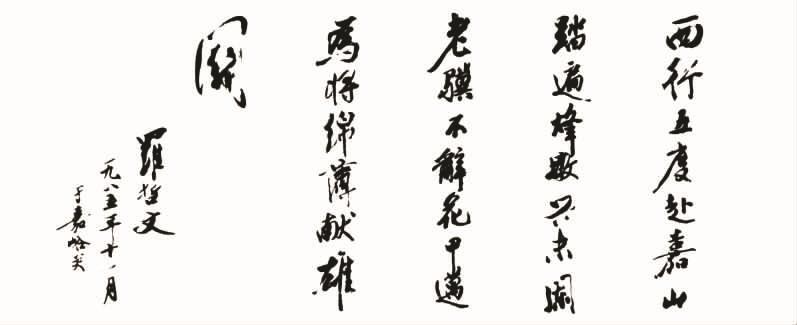 西行五度赴嘉山
踏遍烽墩兴未阑
老骥不辞花甲迈
为将绵薄献雄
关
罗哲文
一九八五年十一月
于嘉峪关